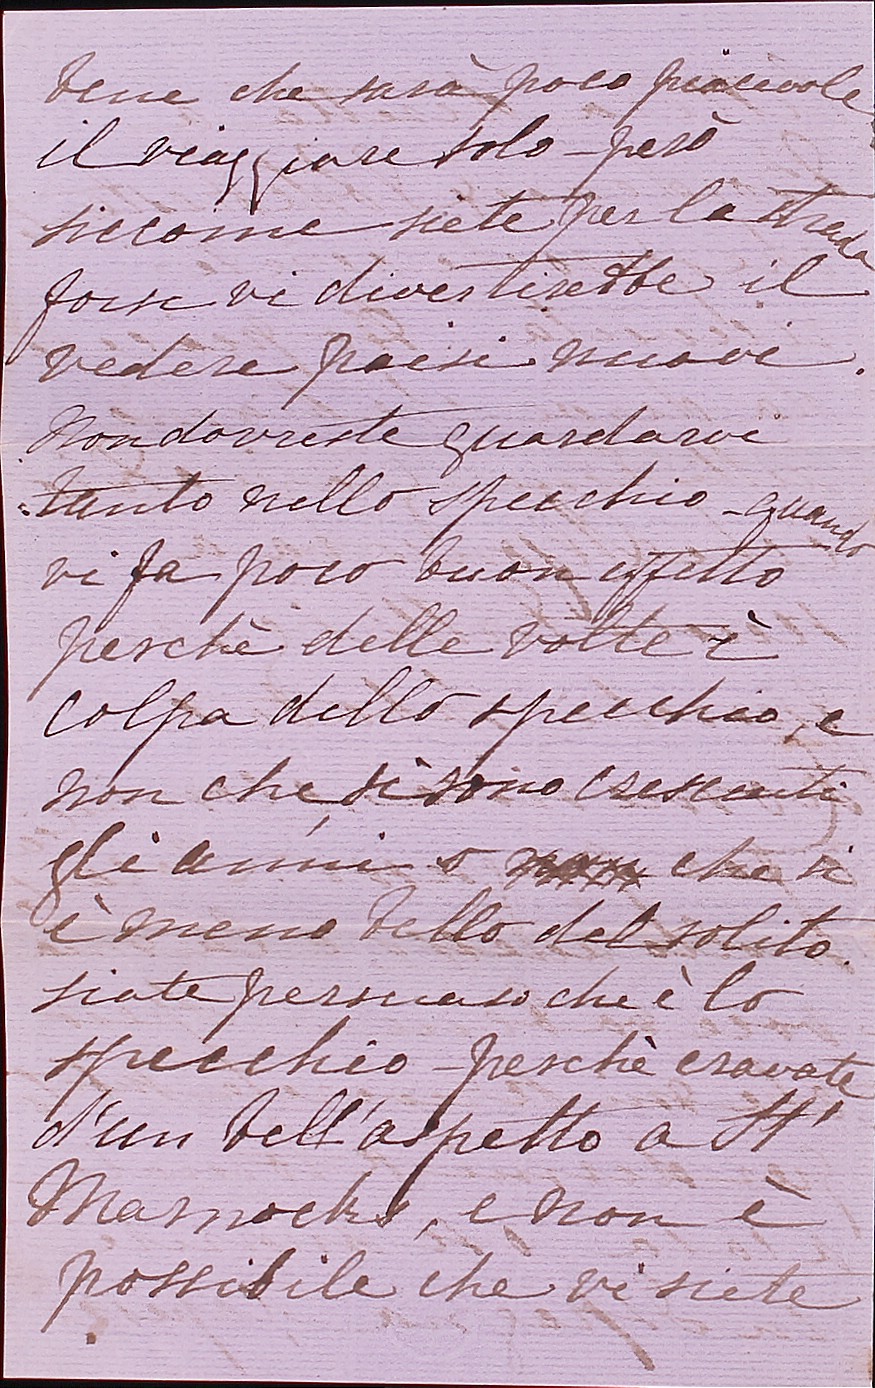 bene che sarà poco piacevole
il viaggiare solo – però
siccome siete per la strada
forse vi divertirebbe il
vedere paesi nuovi.
Non dovreste guardarvi
tanto nello specchio – quando
vi fa poco buon effetto
perchè delle volte è
colpa dello specchio, e
non che si sono cresciuti
gli anni o che si
è meno bello del solito.
siate persuaso che è lo
specchio – perchè eravate
d'un bell'aspetto a St
Marnocks, e non è
possibile che vi siete